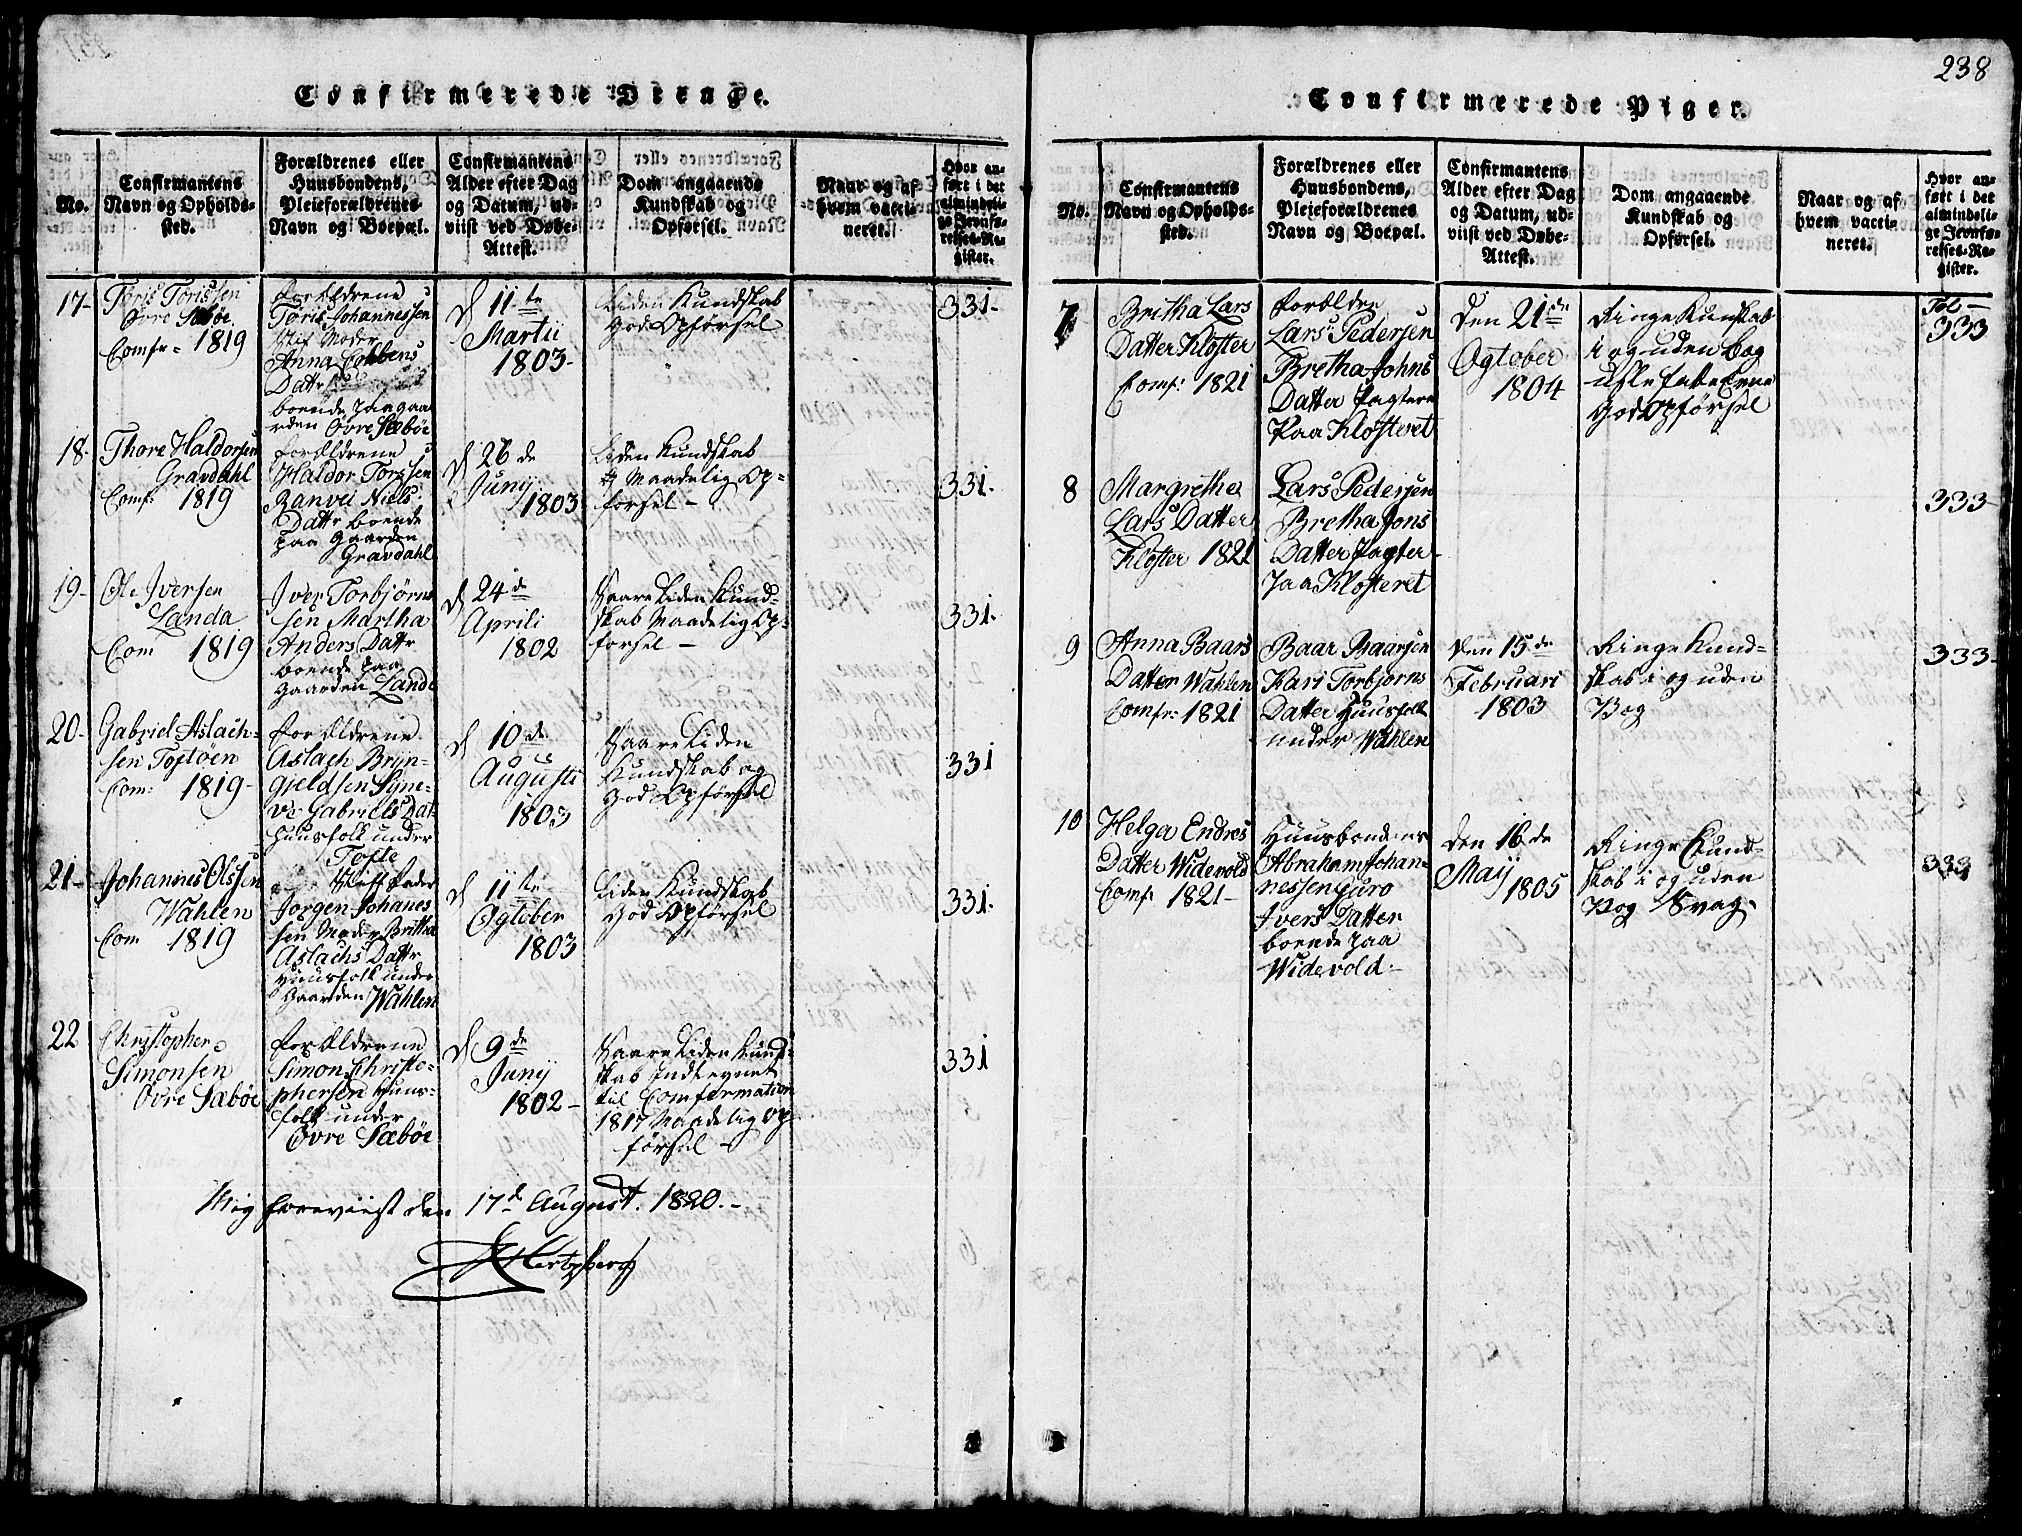 238
Confirmerede Drenge.
No.
Confirmantens
Navn og Opholds-
sted.
Forældrenes eller
Huusbondens,
Pleieforældrenes
Navn og Boepæl.
Confirmantens
Alder efter Dag
og Datum, ud-
viist ved Døbe-
Attest.
Dom angaaende
Kundskab og
Opførsel.
Naar og af
hvem vacci-
neret.
Hvor an-
ført i det
almindeli-
ge Jevnfø-
relses-Re-
gister.
17-
Toris Torissen
Øvre Sæbøe
Comfr= 1819
Forældrene
Toris Johannessen
Stif Moder
Anna
Datr
boende paa gaa
rden Øvre Sæbøe
d 11te
Martii
1803-
Liden Kundskab
God Opførsel
331-
18-
Thore Haldorsen
Gravdahl
Comf: 1819
Forældrene
Haldor Torssen
Ranvei Niels
Dattr boende
paa Gaarden
Gravdahl
d 26de
Junij
1803
Liden Kundskab
Maadelig Op-
førsel -
331-
19-
Ole Iversen
Landa
Com 1819
Iver Torbjørn
sen Martha
Anders Dattr
boende paa
Gaarden Lande
d 24de
Aprili
1802
Saare Liden Kund-
skab Maadelig Op-
førsel -
331-
20-
Gabriel Aslach-
sen Toftøen
Com: 1819-
Forældrene
Aslach Brÿn-
gjeldsen Sÿne-
ve Gabriels Dat-
Huusfolk under
Tofte
d 10de
Augusti
1803
Saare Liden
Kundskab og
God Opførsel
331
21-
Johannes Olssen
Wahlen
Com 1819
Stiffader
Jørgen Johanes
sen Moder Britha
Aslachs Dattr
Huusfolk under
Gaarden Wahlen
d 11te
Ogtober
1803
Liden Kundskab
God Opførsel
331-
22
Christopher
Simonsen
Øvre Sæbøe
Forældrene
Simon Christo-
phersen Huus-
folk under
Øvre Sæbøe
d 9de
Junÿ
1802-
Saare Liden Kund-
skab Indtegnet
til Comformation
1817 Maadelig Op
førsel -
331
Mig foreviist den 17d August. 1820.-
Hertzberg
Confirmerede Piger.
No.
Confirmantens
Navn og Opholds-
sted.
Forældrenes eller
Huusbondens,
Pleieforældrenes
Navn og Boepæl.
Confirmantens
Alder efter Dag
og Datum, ud-
viist ved Døbe-
Attest.
Dom angaaende
Kundskab og
Opførsel.
Naar og af
hvem vacci-
neret.
Hvor an-
ført i det
almindeli-
ge Jevnfø-
relses-Re-
gister.
7
Britha Lars
Datter Kloster
Comf: 1821
Forældre
Lars Pedersen
Bretha Johns
Datter Pagtere
Paa Klosteret
Den 21de
Ogtober
1804
Ringe Kunskab
i og uden bog
God Opførsel
Fol-
333
8
Margretha
Lars Datter
Kloster 1821
Lars Pedersen
Bretha Jons
Datter Pagter
paa Klosteret
333-
9
Anna Baars
Datter Wahlen
Comfr: 1821
Baar Baarsen
Kari Torbjørns
Datter Huusfolk
under Wahlen
Den 15de
Februari
1803
Ringe Kund-
skab i og uden
Bog
333-
10
Helga Endres
Datter Widevold
Comf: 1821-
Huusbonden
Abraham Johan-
nessen Guro
Ivers Datter
boende paa
Widevold-
den 16de
Maÿ
1805
Ringe Kund-
skab i og uden
Bog Svag-
333